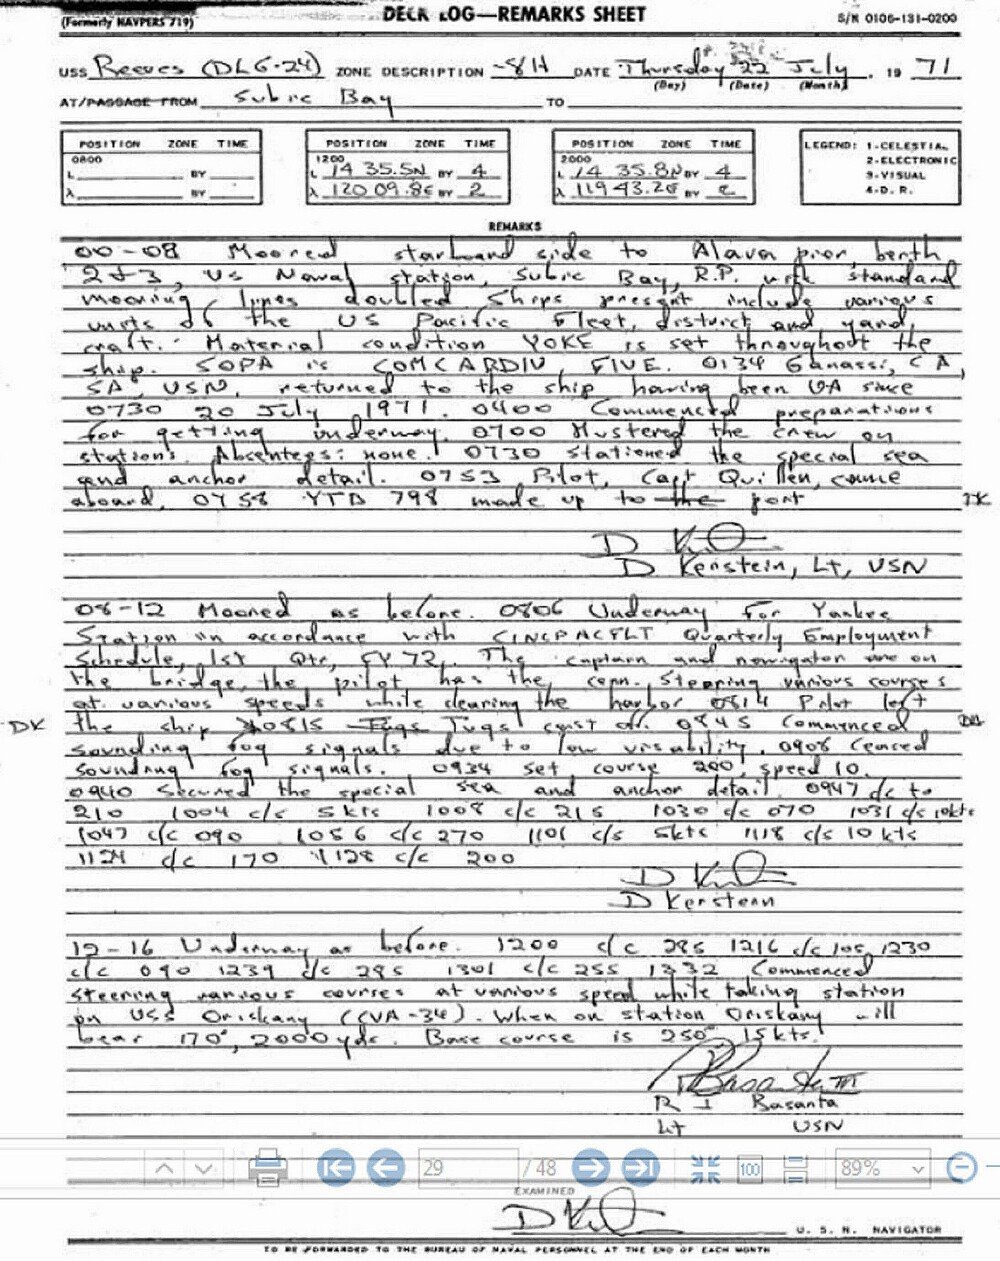 (Formerly NAVPERS 719)
DECK LOG—REMARKS SHEET
S/N 0106-131-0200
USS Reeves (DLG-24) ZONE DESCRIPTION -8H DATE Thursday 22 July, 1971
(Day) (Date) (Month)
AT/PASSAGE FROM Subic Bay TO
POSITION ZONE TIME
0800
L BY
λ BY
POSITION ZONE TIME
1200
L 14 35.5N BY 4
λ 120 09.8E BY 2
POSITION ZONE TIME
2000
L 14 35.8N BY 4
λ 119 43.2E BY 2
LEGEND: 1-CELESTIAL
2-ELECTRONIC
3-VISUAL
4-D. R.
REMARKS
00-08 Moored starboard side to Alava pier berth
2&3, US Naval station, Subic Bay, R.P. with standard
mooring lines doubled Ships present include various
units of the US Pacific Fleet, district and yard
craft. Material condition YOKE is set throughout the
ship. SOPA is COMCARDIV FIVE. 0134 Ganassi, C A,
SA, USN, returned to the ship having been UA since
0730 20 July 1971. 0400 Commenced preparations
for getting underway. 0700 Mustered the crew on
stations. Absentees: none. 0730 Stationed the special sea
and anchor detail. 0753 Pilot, Capt Quillen, came
aboard, 0758 YTB 798 made up to the port DK
D Kenstein, Lt, USN
08-12 Moored as before. 0806 Underway for Yankee
Station in accordance with CINCPACFLT Quarterly Employment
Schedule, 1st Qtr, FY 72. The captain and navigator are on
the bridge, the pilot has the conn. Steering various courses
at various speeds while clearing the harbor 0814 Pilot left
DK the ship 0815 Tugs Tugs cast off. 0845 Commenced DK
sounding fog signals due to low visability. 0908 Ceased
sounding fog signals. 0934 set course 200, speed 10.
0940 Secured the special sea and anchor detail. 0947 c/c to
210 1004 c/s 5 kts 1008 c/c 215 1030 c/c 070 1031 c/s 10kts
1047 c/c 090 1056 c/c 270 1101 c/s 5kts 1118 c/s 10 kts
1124 c/c 170 1128 c/c 200
D Kenstein
12-16 Underway as before. 1200 c/c 285 1216 c/c 105 1230
c/c 090 1239 c/c 285 1301 c/c 255 1332 Commenced
steering various courses at various speed while taking station
on USS Oriskany (CVA-34). When on station Oriskany will
bear 170°, 2000 yds. Base course is 250° 15 kts.
R I Basanta
Lt USN
29 / 48 100 89%
EXAMINED
U. S. N. NAVIGATOR
TO BE FORWARDED TO THE BUREAU OF NAVAL PERSONNEL AT THE END OF EACH MONTH